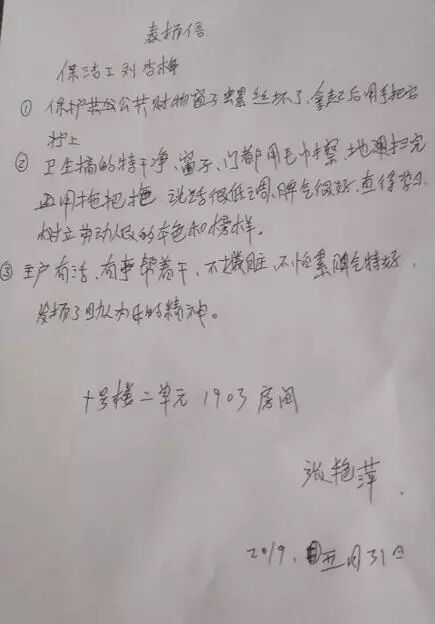 表扬信
保洁工刘杏梅
① 保护公共财物窗子螺丝坏了,拿起后用手把它
拧上
② 卫生搞的特干净,窗子、门都用毛巾擦,地扫完
再用拖把拖 说话很低调,脾气很好,直得学习,
树立劳动人民的本色和榜样。
③ 业户有活,有事帮着干,不嫌脏,不怕累脾气特好,
发扬了助人为乐的精神。
十号楼二单元 1903 房间
张艳萍.
2019. 五月31日